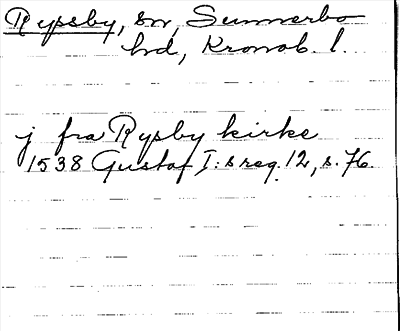 Rysby, sn, Sunnerbo
hd, Kronob. l.
j fra Rysby kirke
1538 Gustaf I:s reg. 12, s. 76.